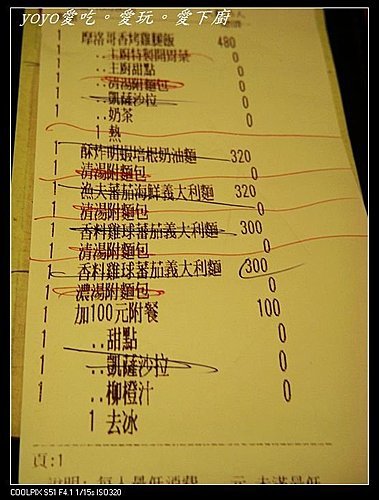 yoyo愛吃。愛玩。愛下廚
1 摩洛哥香烤雞腿飯 480
1 ..主廚特製開胃菜 0
1 ..主廚甜點 0
1 ..清湯附麵包 0
1 ..凱薩沙拉 0
1 ..奶茶 0
1 熱
1 酥炸明蝦培根奶油麵 320
1 清湯附麵包 0
1 漁夫蕃茄海鮮義大利麵 320
1 清湯附麵包 0
1 香料雞球蕃茄義大利麵 300
1 清湯附麵包 0
1 香料雞球蕃茄義大利麵 300
1 濃湯附麵包 0
1 加100元附餐 100
1 ..甜點 0
1 ..凱薩沙拉 0
1 ..柳橙汁 0
1 去冰
頁:1
說明: 每人最低消費 元 未滿最低
COOLPIX S51 F4.1 1/15s ISO320